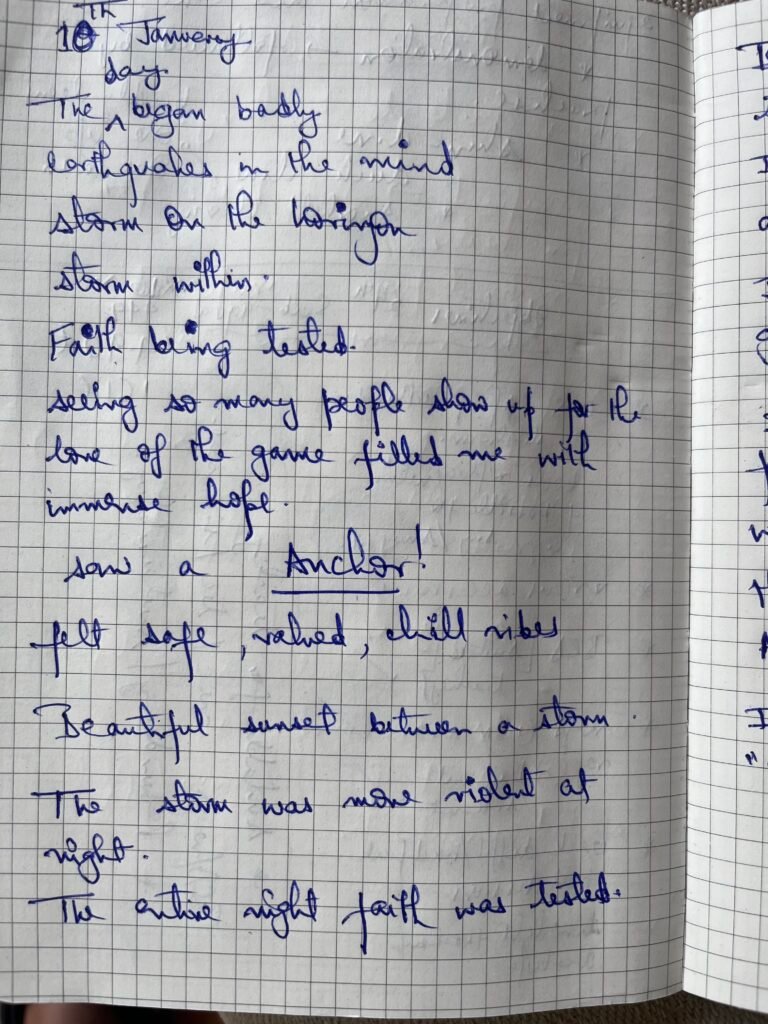 10th January
The day began badly
earthquakes in the mind
storm on the horizon
storm within.
Faith being tested.
seeing so many people show up for the
love of the game filled me with
immense hope.
saw a Anchor!
felt safe, valued, chill vibes
Beautiful sunset between a storm.
The storm was more violent at
night.
The entire night faith was tested.